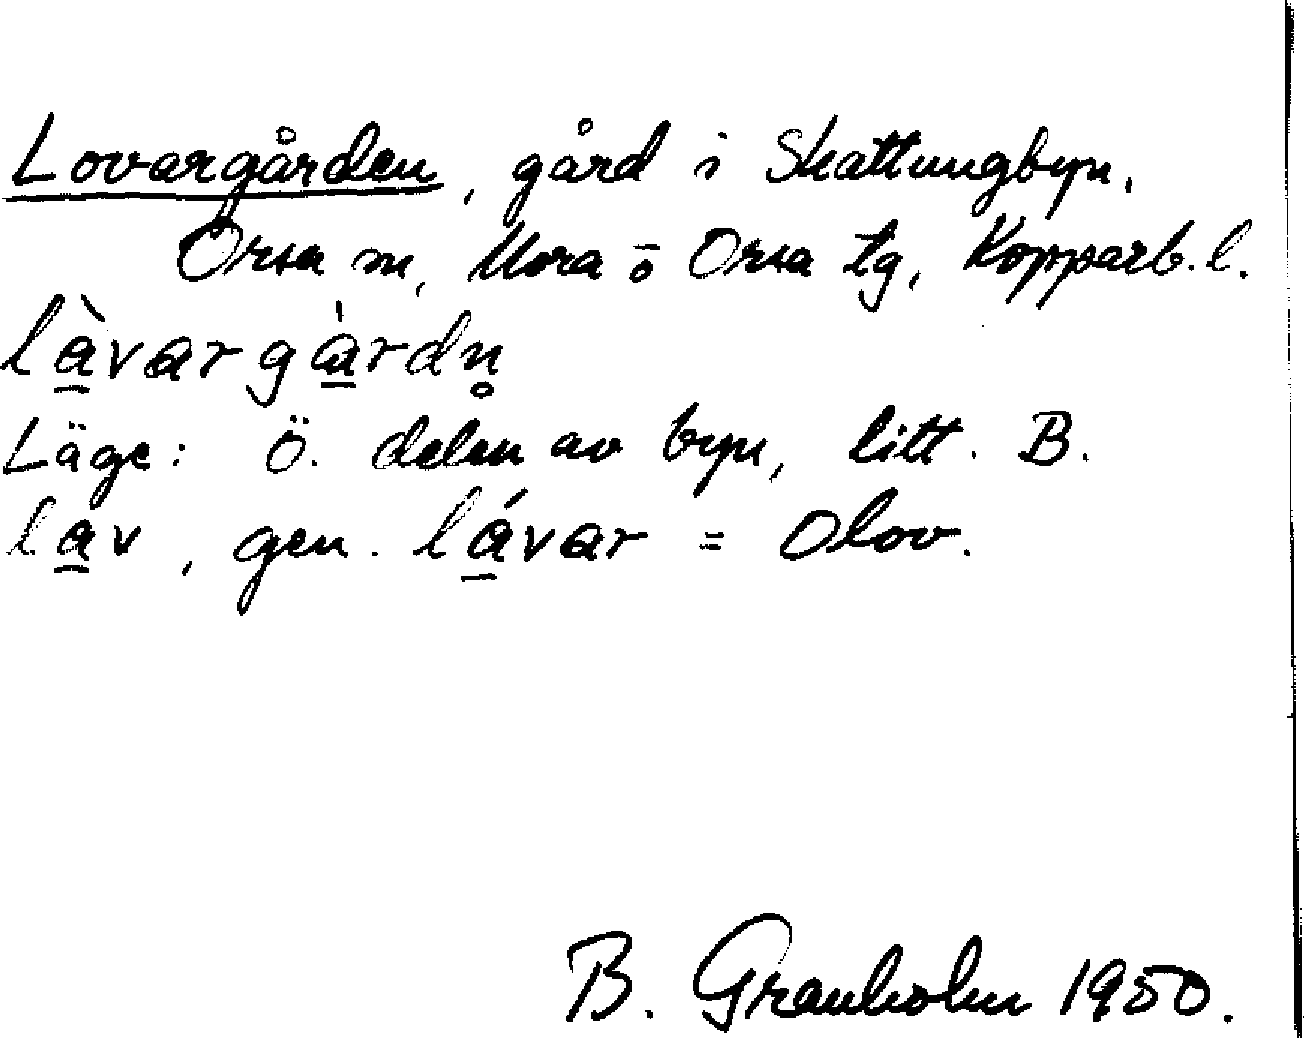 Lovargården, gård i Skattungbyn,
Orsa sn, Mora o Orsa tg, Kopparb. l.
là̱vargà̱rdn̥
Läge: Ö. delen av byn, litt. B.
la̱v, gen. lá̱var = Olov.
B. Granholm 1950.